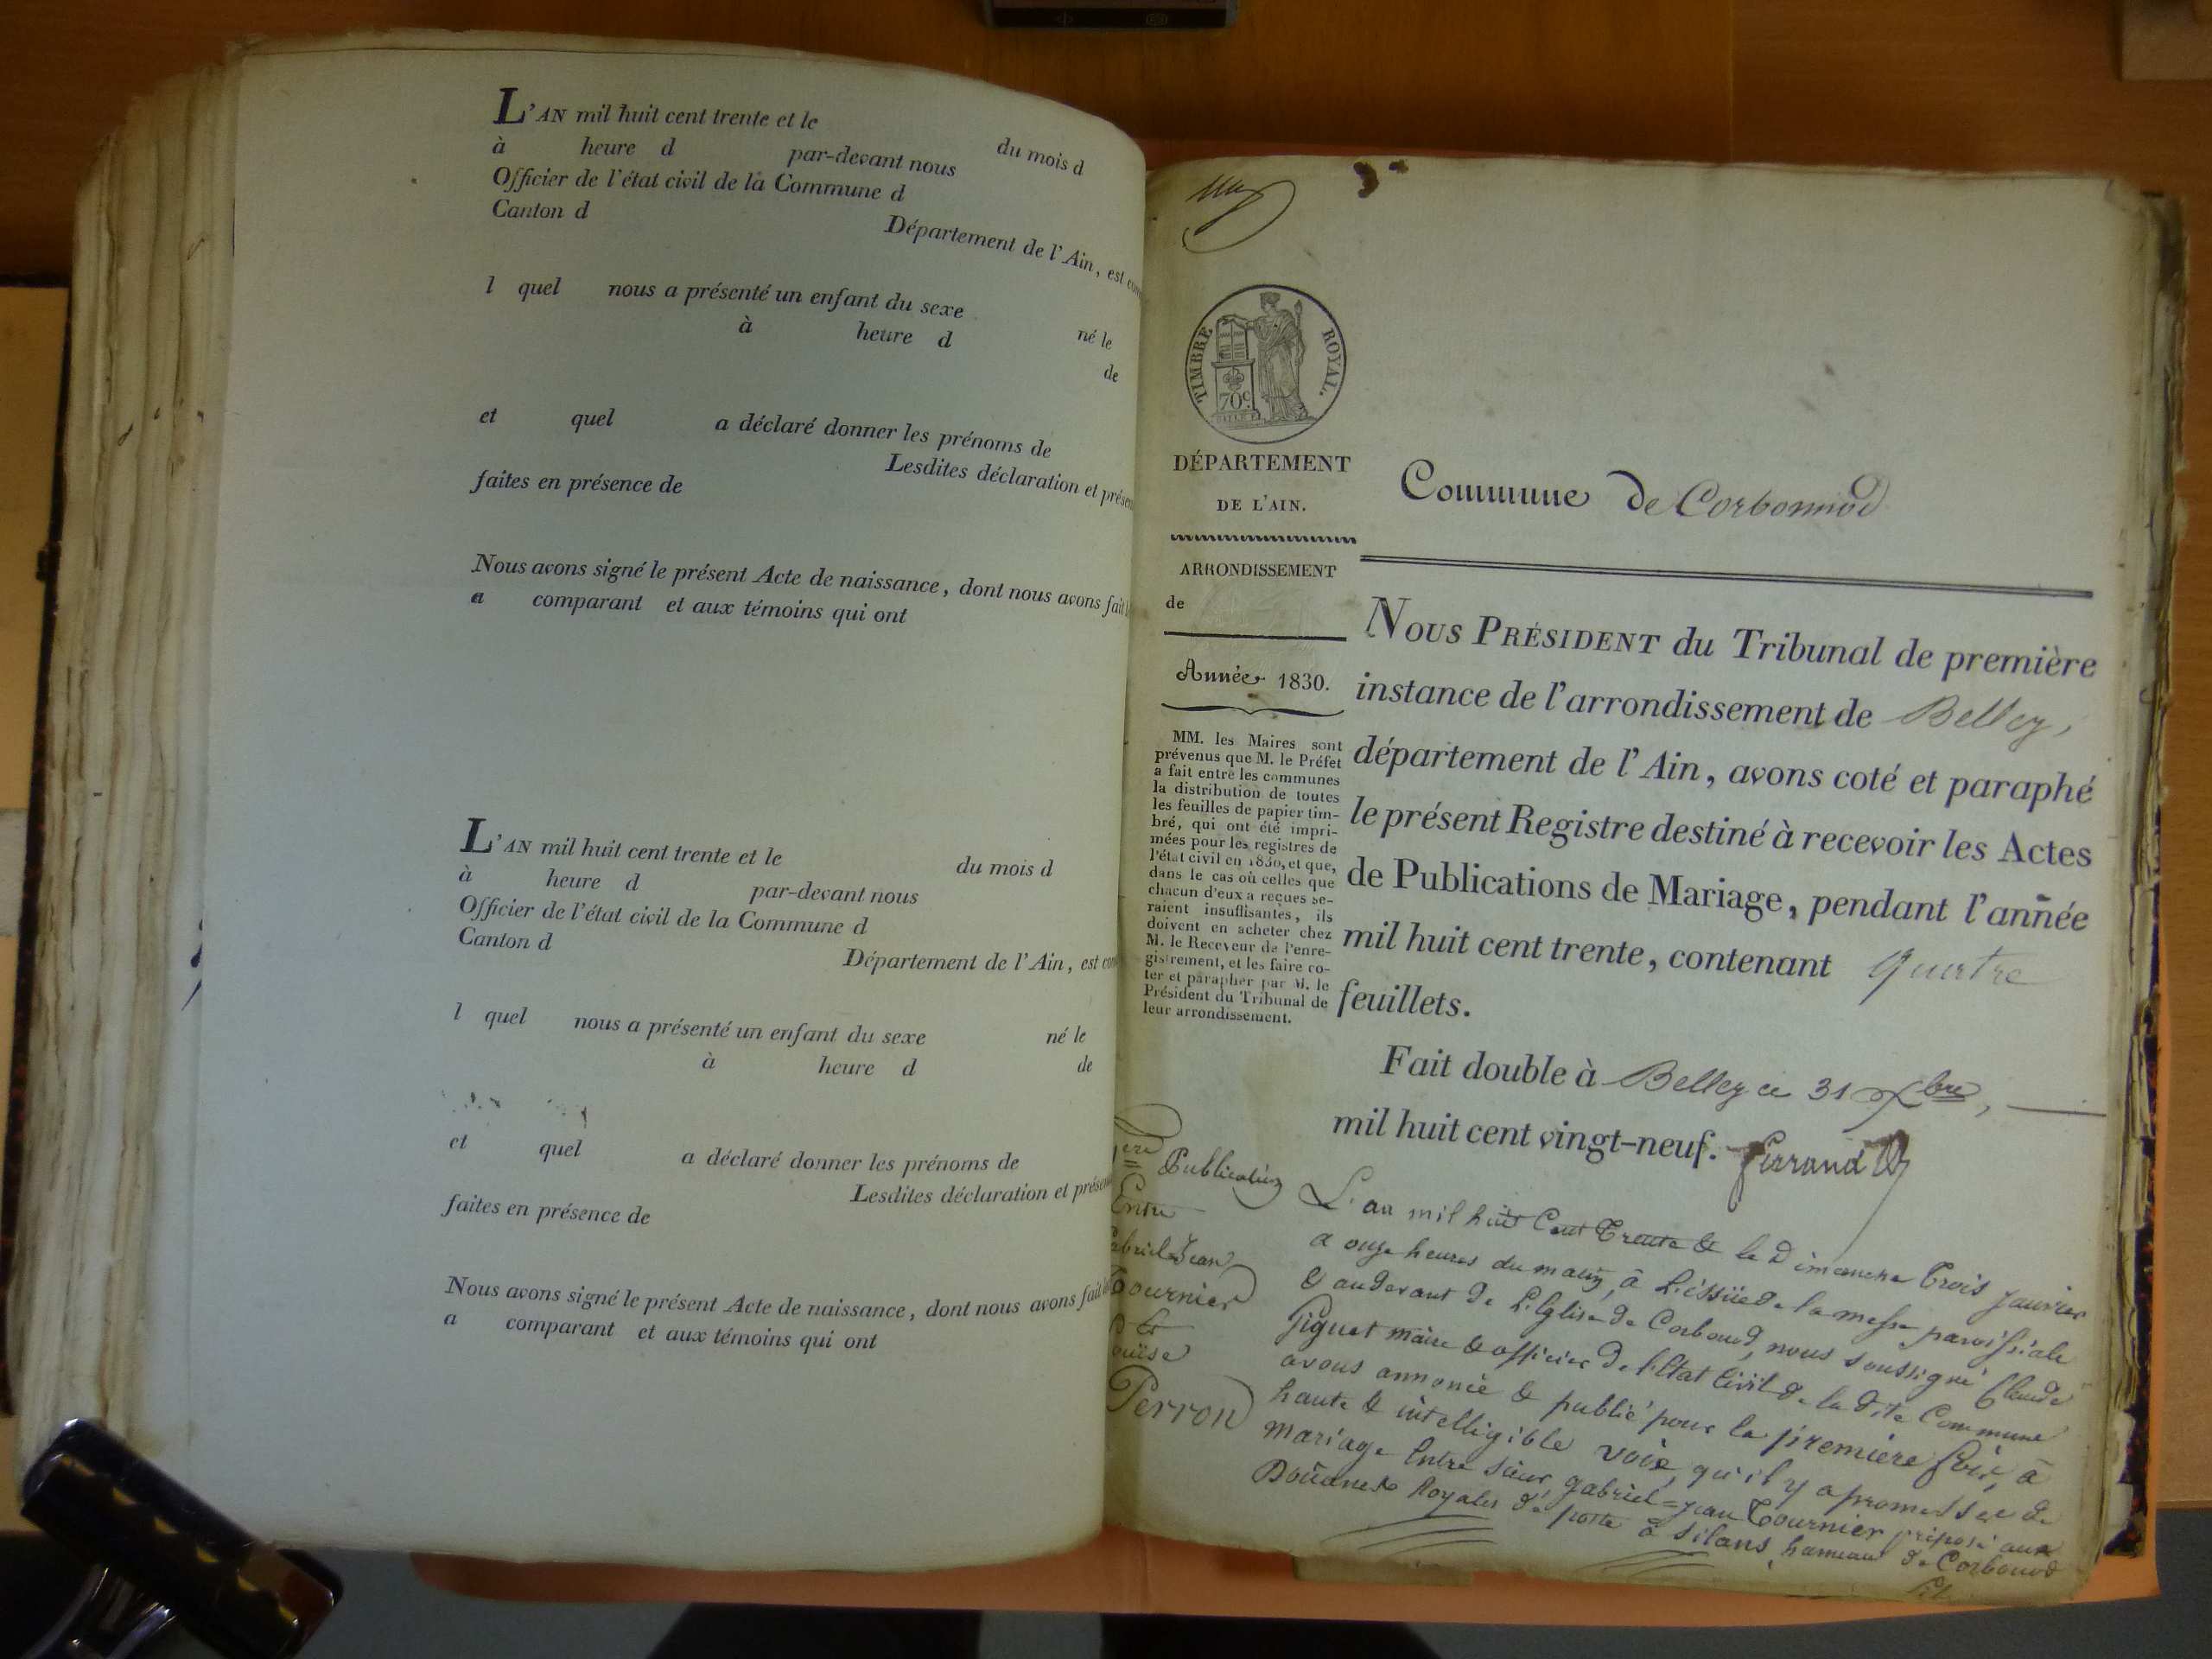 L'AN mil huit cent trente et le du mois d
à heure d par-devant nous
Officier de l'état civil de la Commune d
Canton d Département de l'Ain, est
l quel nous a présenté un enfant du sexe né le
à heure d de
et quel a déclaré donner les prénoms de
Lesdites déclaration et présen
faites en présence de
Nous avons signé le présent Acte de naissance, dont nous avons fait
a comparant et aux témoins qui ont
L'AN mil huit cent trente et le du mois d
à heure d par-devant nous
Officier de l'état civil de la Commune d
Canton d Département de l'Ain, est
l quel nous a présenté un enfant du sexe né le
à heure d de
et quel a déclaré donner les prénoms de
Lesdites déclaration et présen
faites en présence de
Nous avons signé le présent Acte de naissance, dont nous avons fait
a comparant et aux témoins qui ont
TIMBRE ROYAL.
70c.
DÉPARTEMENT
DE L'AIN.
ARRONDISSEMENT
de
Année 1830.
MM. les Maires sont
prévenus que M. le Préfet
a fait entre les communes
la distribution de toutes
les feuilles de papier tim-
bré, qui ont été impri-
mées pour les registres de
l'état civil en 1830, et que,
dans le cas où celles que
chacun d'eux a reçues se-
raient insuffisantes, ils
doivent en acheter chez
M. le Receveur de l'enre-
gistrement, et les faire co-
ter et parapher par M. le
Président du Tribunal de
leur arrondissement.
Commune de Corbonod
NOUS PRÉSIDENT du Tribunal de première
instance de l'arrondissement de Belley,
département de l'Ain, avons coté et paraphé
le présent Registre destiné à recevoir les Actes
de Publications de Mariage, pendant l'année
mil huit cent trente, contenant quatre
feuillets.
Fait double à Belley ce 31 Xbre,
mil huit cent vingt-neuf. Ferrand
1ere Publication
Entre
Gabriel Jean
Tournier
&
Louïse
Perron
L'an mil huit Cent Trente & le Dimanche Trois janvier
a onze heures du matin, à L'issüe de la messe paroissiale
& audevant de L'Eglise de Corbonod, nous soussigné Claude
Piguet maire & officier de l'Etat Civil de la dite Commune
avons annoncé & publié pour la première fois, à
haute & intelligible voix, qu'il y a promesse de
mariage Entre sieur gabriel=jean Tournier préposé aux
Doüanes Royales de poste à silans, hameau de Corbonod
fils